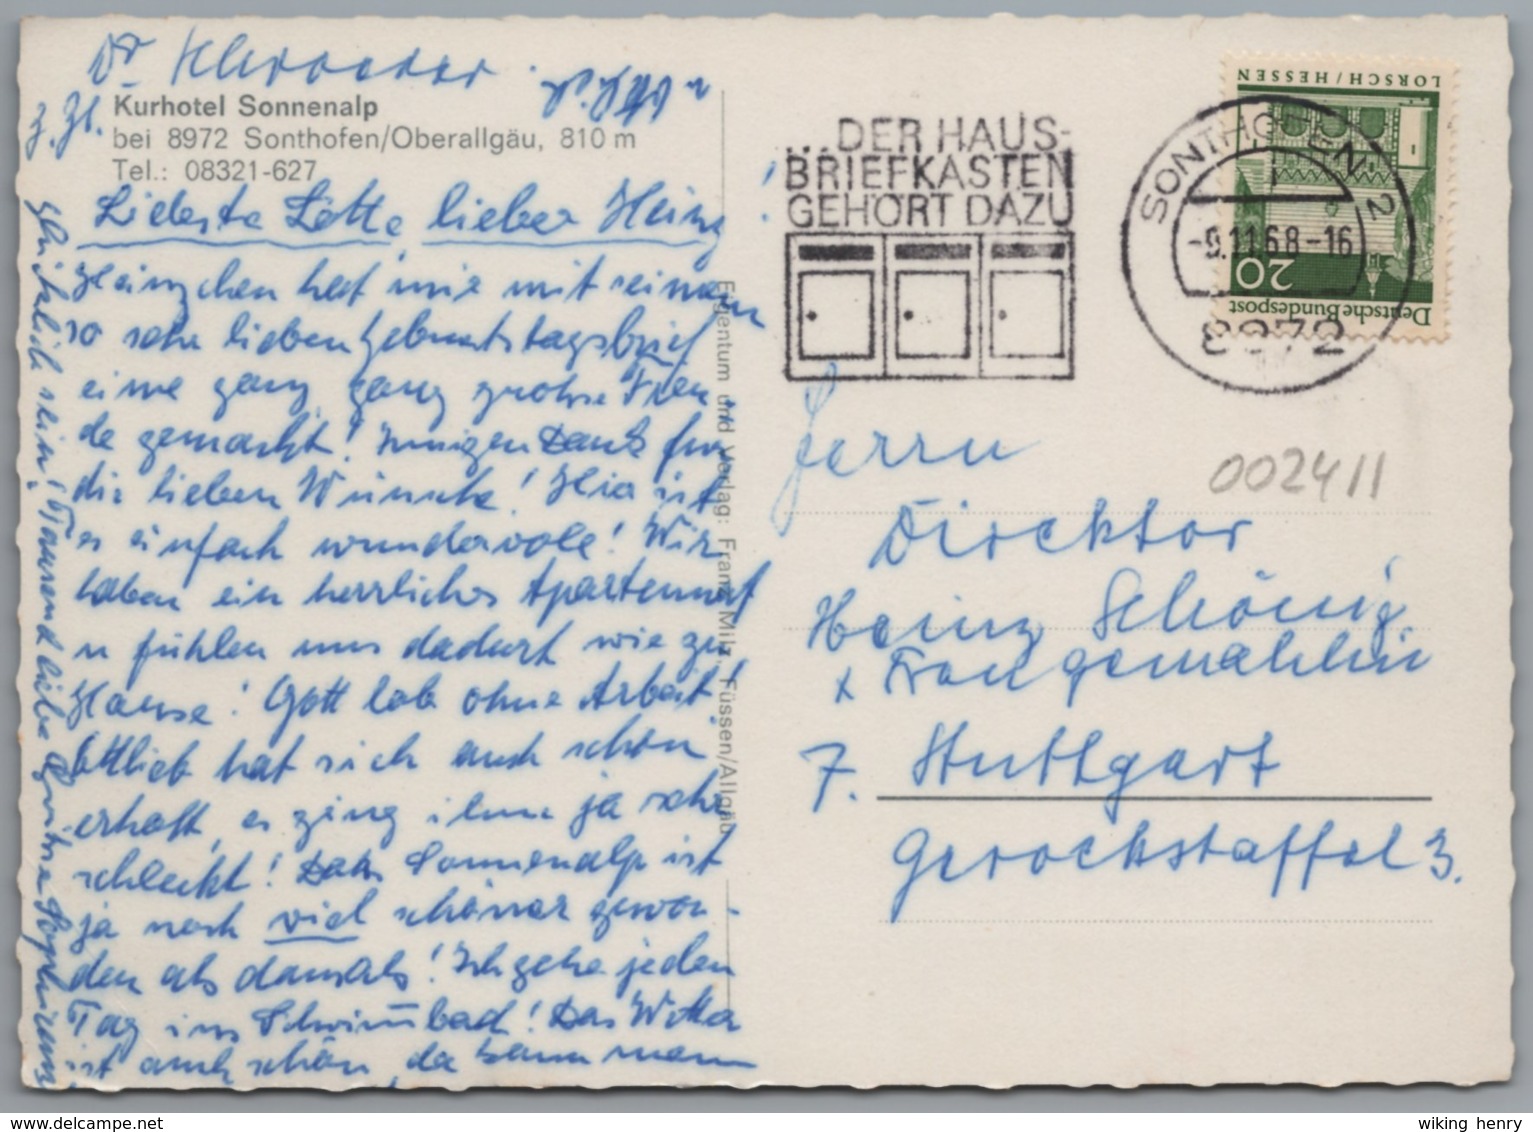 Dr Schroeder
z. Zt.
Kurhotel Sonnenalp
bei 8972 Sonthofen/Oberallgäu, 810 m
Tel.: 08321-627
Liebste Lotte, lieber Heinz!
Heinzchen hat mir mit seinem
so sehr lieben Geburtstagsbrief
eine ganz, ganz grosse Freu-
de gemacht! Innigen Dank für
die lieben Wünsche! Hier ist
es einfach wundervoll! Wir
haben ein herrliches Apartement
u fühlen uns dadurch wie zu
Hause! Gott lob ohne Arbeit!
hat sich auch schon
erholt, es ging ihm ja sehr
schlecht! Das Sonnenalp ist
ja noch viel schöner gewor-
den als damals! Ich gehe jeden
Tag ins Schwimmbad! Das Wetter
ist auch schön, da kann man
glücklich sein! Tausend liebe Grüsse
Eigentum und Verlag: Franz Milz, Füssen/Allgäu
...DER HAUS-
BRIEFKASTEN
GEHÖRT DAZU
SONTHOFEN 2
-9.11.68-16
8972
LORSCH/HESSEN
20
Deutsche Bundespost
002411
Herrn
Direktor
Heinz Schönig
+ Frau gemahlin
7. Stuttgart
Gerokstaffel 3.
delcampe.net
wiking henry